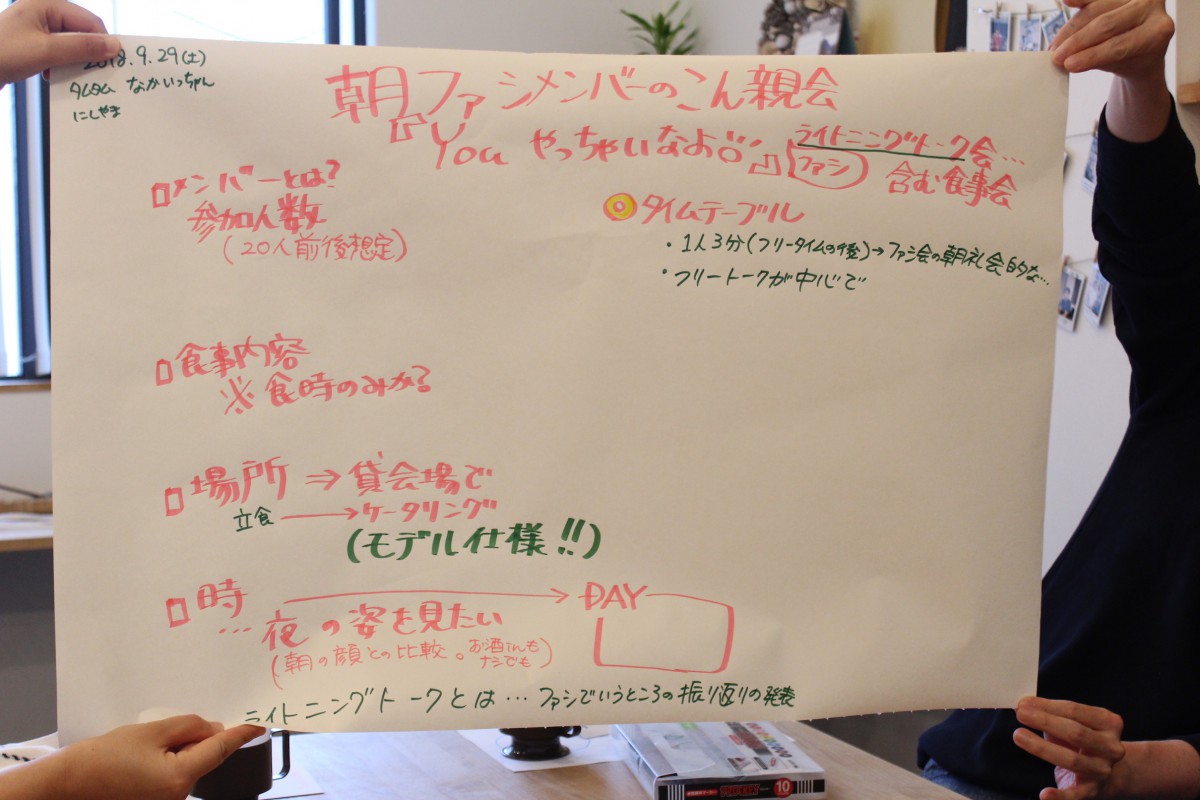 2018.9.29(土)
タムタム なかいっちゃん
にしやま
朝ファシメンバーのこん親会
『You やっちゃいなよ』
ライトニングトーク会…
ファシ
含む食事会
メンバーとは?
参加人数
(20人前後想定)
タイムテーブル
・1人3分(フリータイムの後)→ファシ会の朝礼会的な…
・フリートークが中心で
食事内容
※食時のみか?
場所 ⇒ 貸会場で
立食 → ケータリング
(モデル仕様!!)
時 → DAY
… 夜の姿を見たい
(朝の顔との比較。お酒でも
ナシでも)
ライトニングトークとは…ファシでいうところの振り返りの発表
10